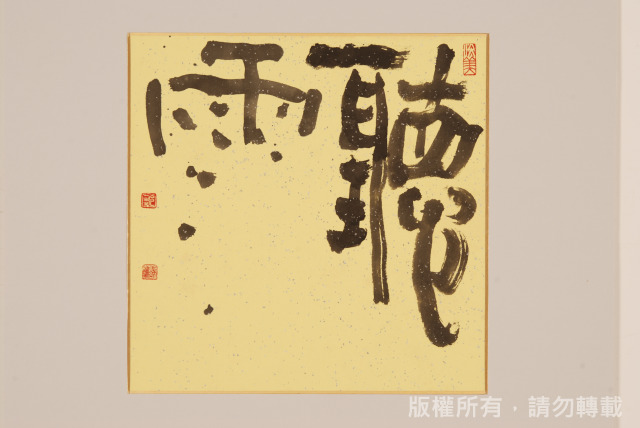 聽雨
版權所有．請勿轉載